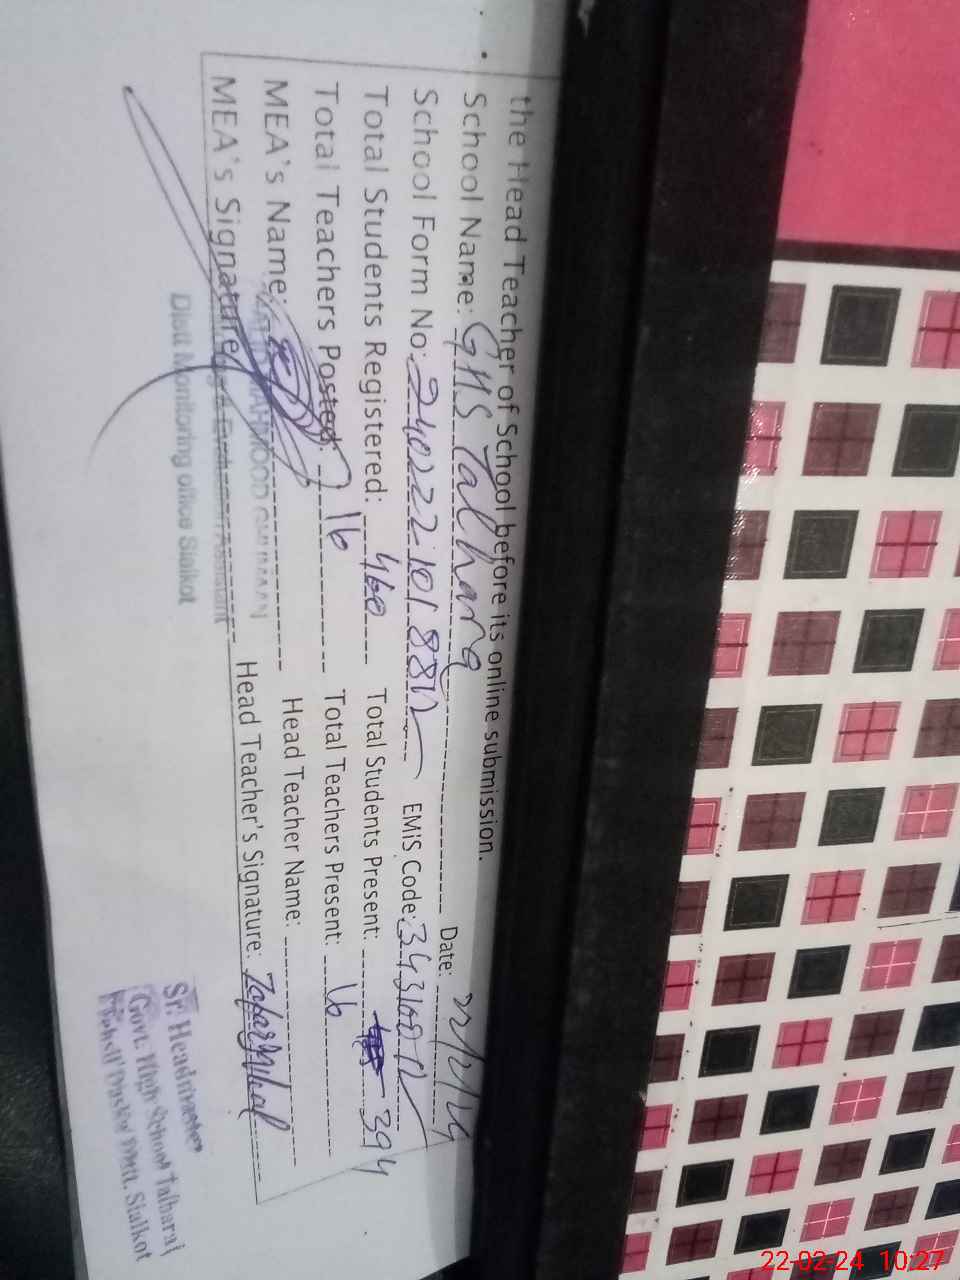 the Head Teacher of School before its online submission.
School Name: GHS Talhara Date: 22/2/24
School Form No: 240222 101 88 EMIS Code: 343102
Total Students Registered: 460 Total Students Present: 394
Total Teachers Posted: 16 Total Teachers Present: 16
MEA's Name: Head Teacher Name:
MEA's Signature Head Teacher's Signature:
MAHMOOD
Distt Monitoring office Sialkot
Sr. Headmaster
Govt. High School Talhara
Tehsil Daska Distt. Sialkot
22-02-24 10:27